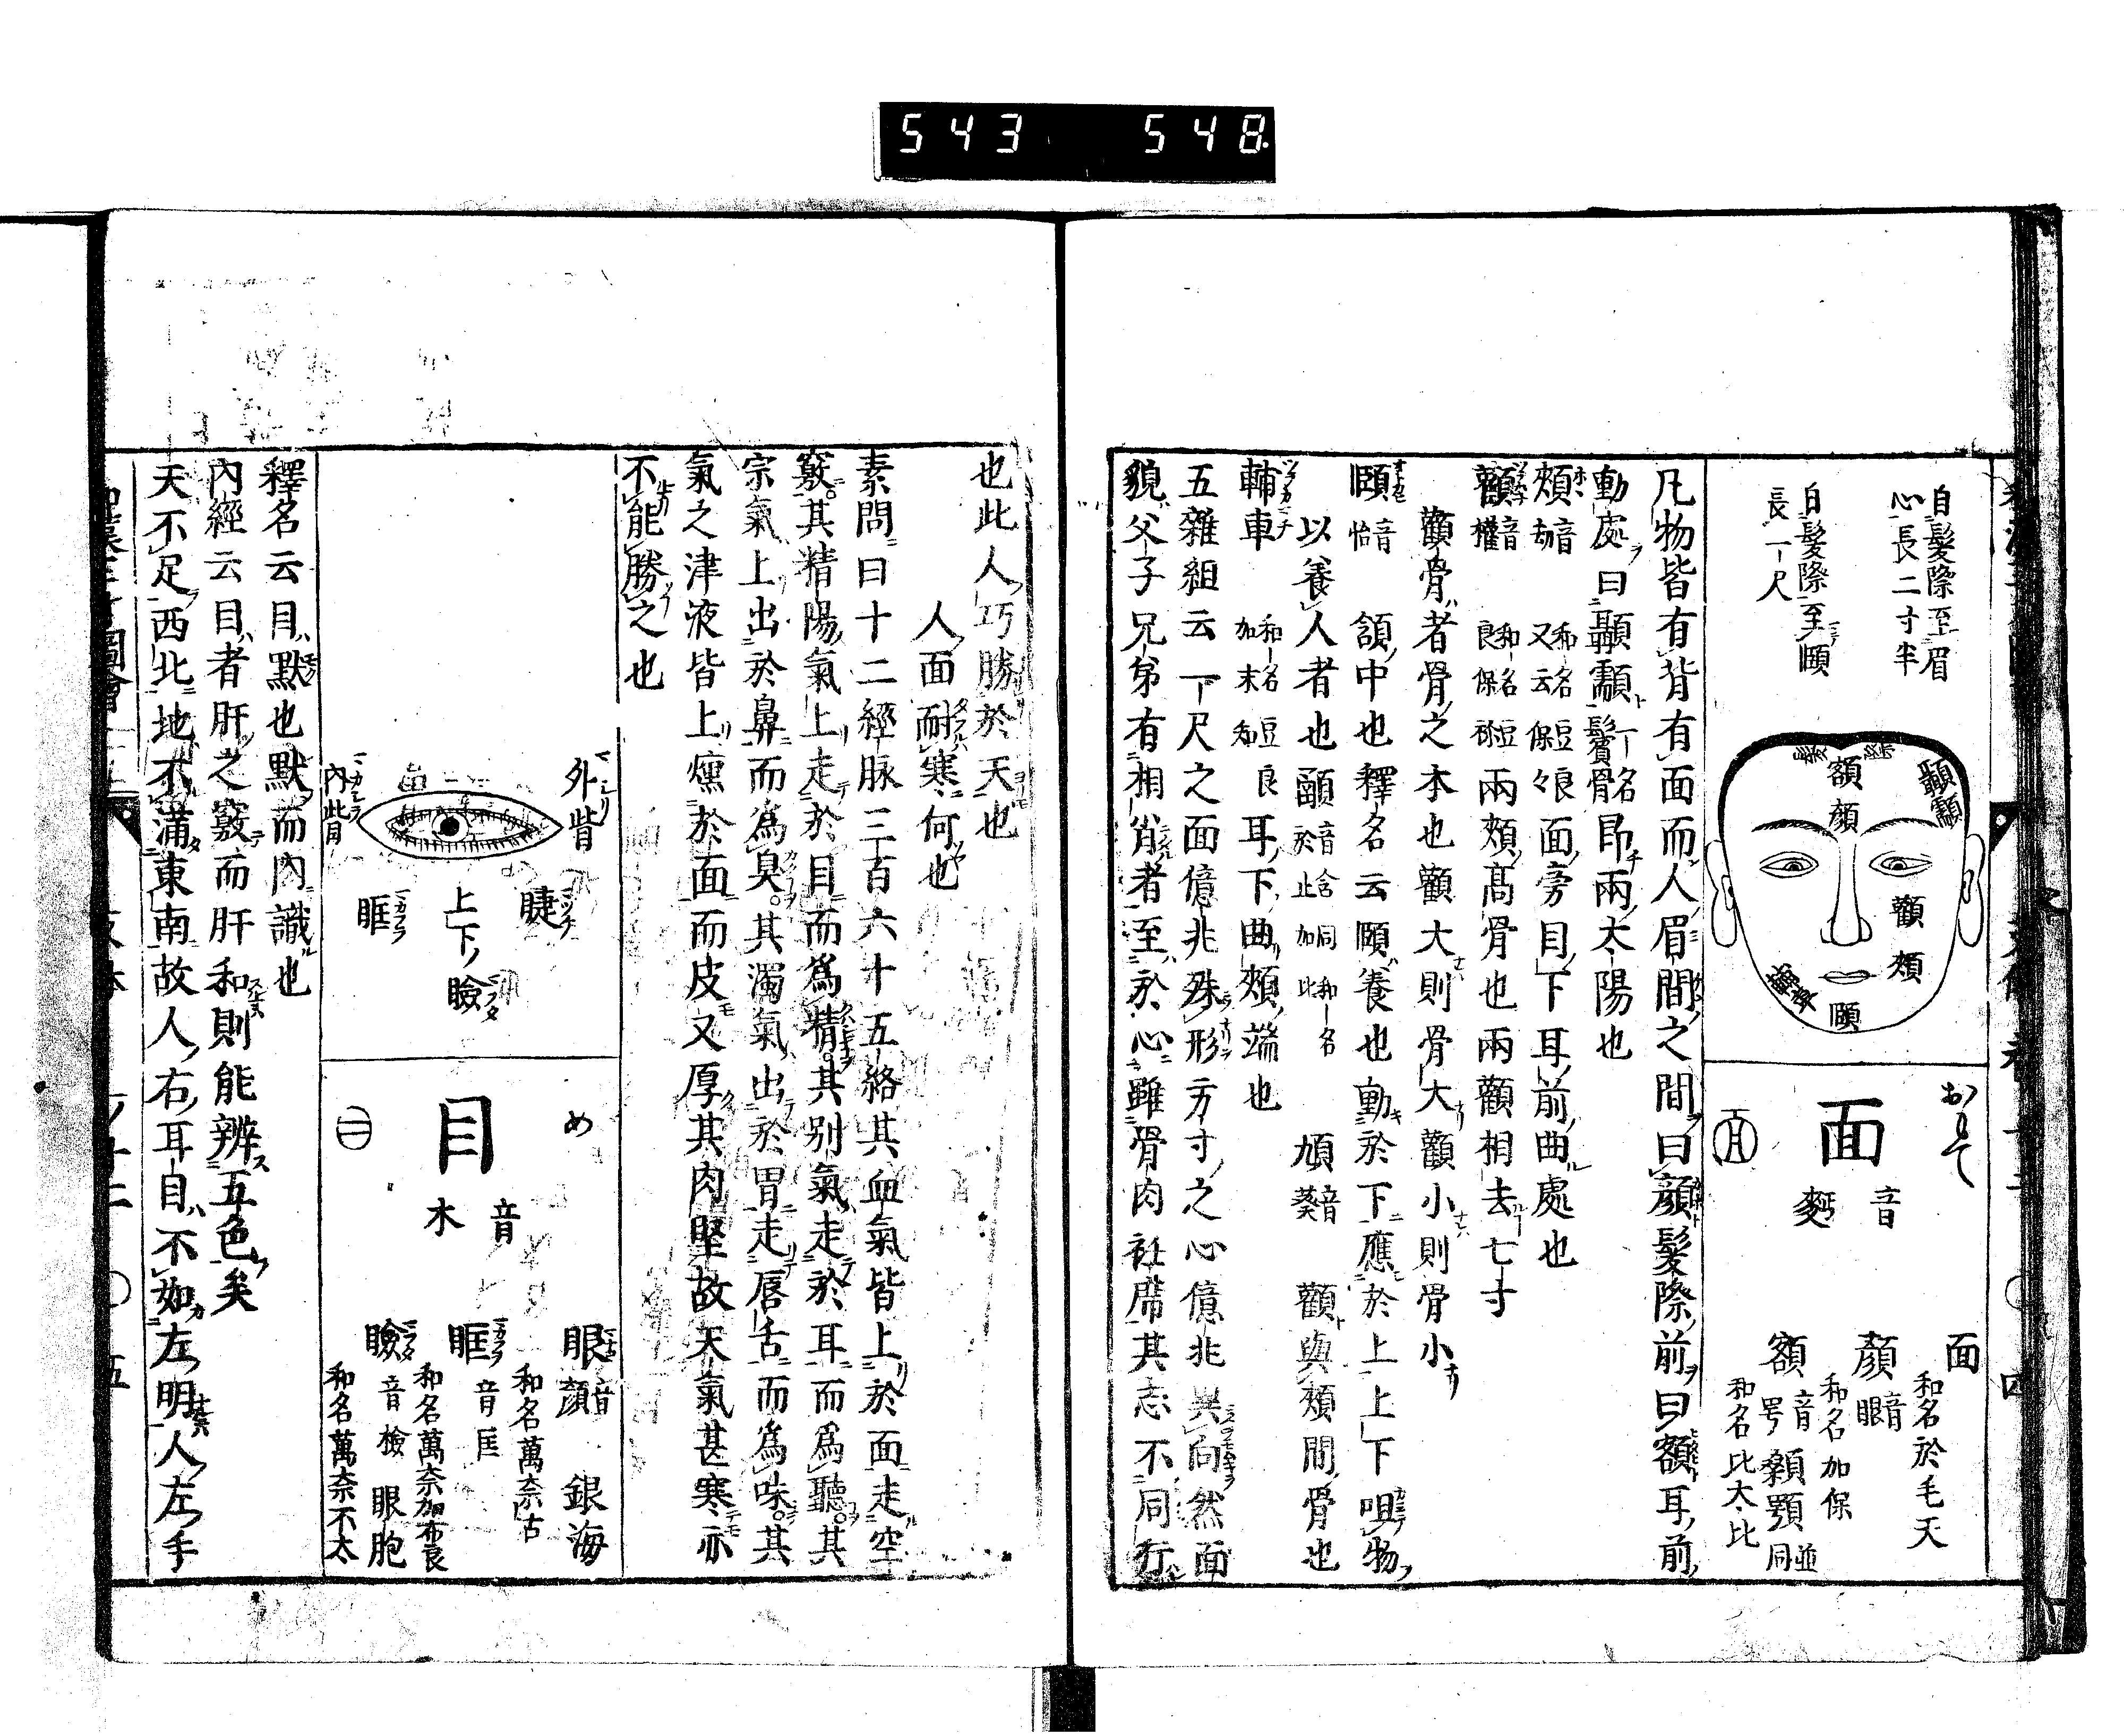 543 548
自髮際至眉
心長二寸半
自髮際至頤
長一尺
髮際
額
顏
顳顬
顴
頰
輔車
頤
おもて
面
音
麪
面
和名於毛天
顏
音眼
和名加保
額
音㖾
顙顎並同
和名比太比
凡物皆有背有面而人眉間之間曰顏髮際前曰額耳前
動處曰顳顬一名鬢骨昂兩太陽也
頰音劫 和名豆良 又云保保 面旁目下耳前曲處也
顴音權 和名豆良保祢 兩頰高骨也兩顴相去七寸
顴骨者骨之本也顴大則骨大顴小則骨小
頤音怡 頷中也釋名云頤養也動於下應於上上下咀物
以養人者也顄音含同 和名於止加比 頄音葵 顴與頰間骨也
輔車 和名豆良加末知 耳下曲頰端也
五雜組云一尺之面億兆殊形方寸之心億兆異向然面
貌父子兄弟有相肖者至於心雖骨肉衽席其志不同行
也此人巧勝於天也
人面耐寒何也
素問曰十二經脉三百六十五絡其血氣皆上於面走空
竅其精陽氣上走於目而爲精其別氣走於耳而爲聽其
宗氣上出於鼻而爲臭其濁氣出於胃走唇舌而爲味其
氣之津液皆上燻於面而皮又厚其肉堅故天氣甚寒亦
不能勝之也
外眥
內眥
睫
上下瞼
眶
め
目
音
木
眼
音顏
銀海
和名萬奈古
眶
音匡
和名萬奈加布良
瞼
音檢
眼胞
和名萬奈不太
釋名云目默也默而內識也
內經云目者肝之竅而肝和則能辨五色矣
天不足西北地不滿東南故人右耳目不如左明人左手